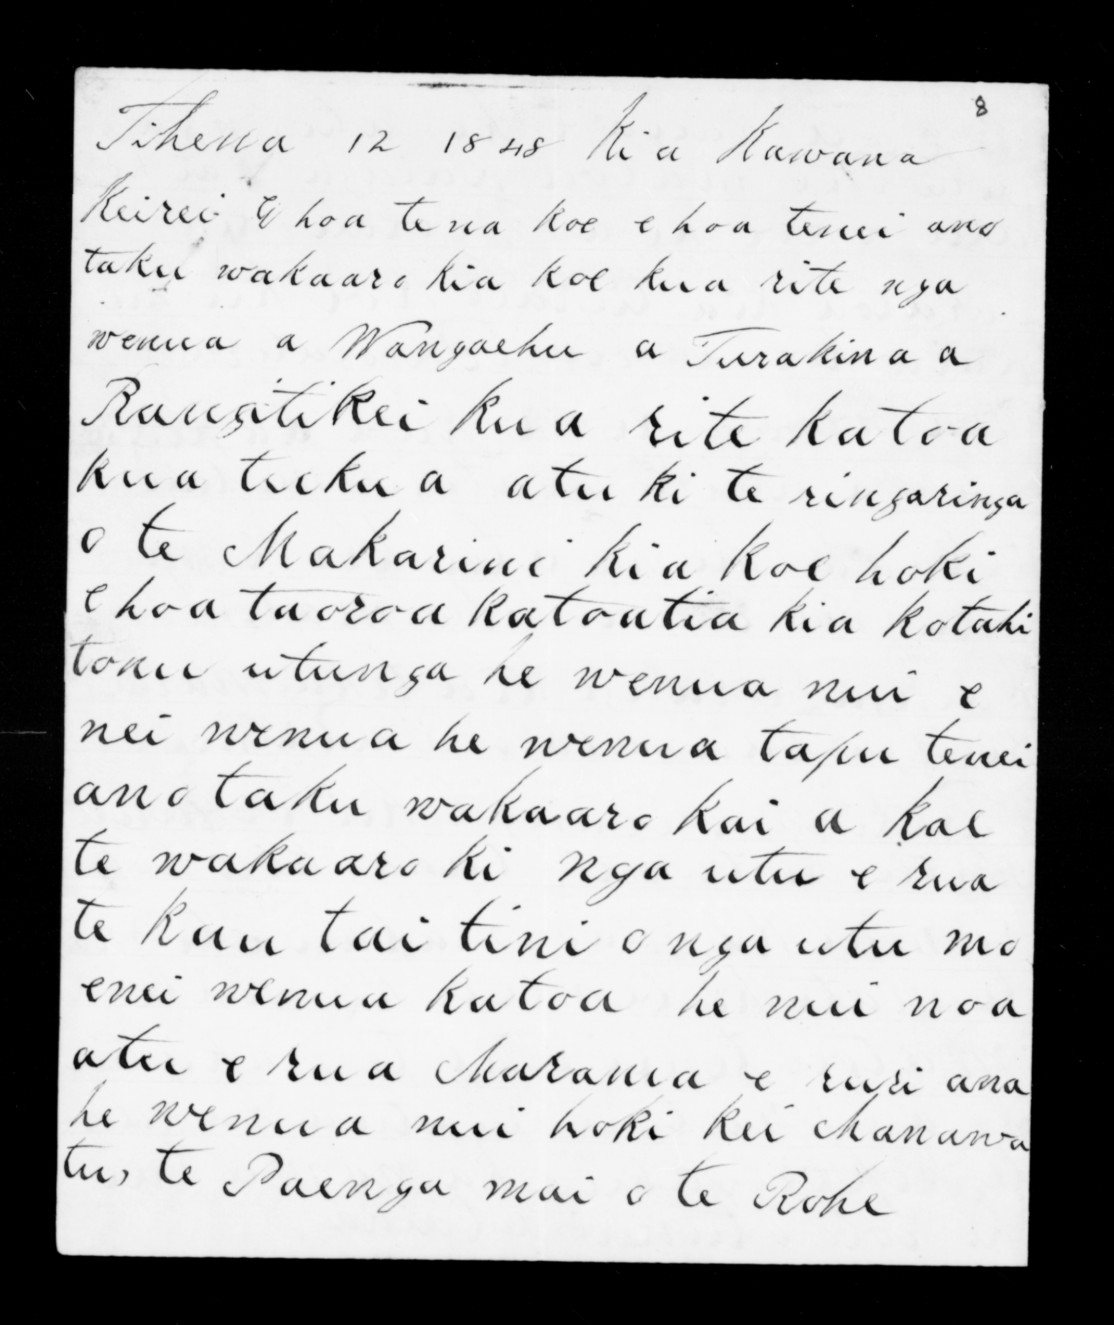 8
Tihema 12 1848 Kia Kawana
Keirei E hoa tena koe e hoa tenei ano
taku wakaaro kia koe kua rite nga
wenua a Wangaehu a Turakina a
Rangitikei kua rite katoa
kua tukua atu ki te ringaringa
o te Makarini kia koe hoki
e hoa taoroa katoatia kia kotahi
toku utunga he wenua nui e
nei wenua he wenua tapu tenei
ano taku wakaaro kai a koe
te wakaaro ki nga utu e rua
te kau tai tini o nga utu mo
enei wenua katoa he nui noa
atu e rua Marama e ruri ana
he wenua nui hoki kei Manawa
tu, te Paenga mai o te Rohe